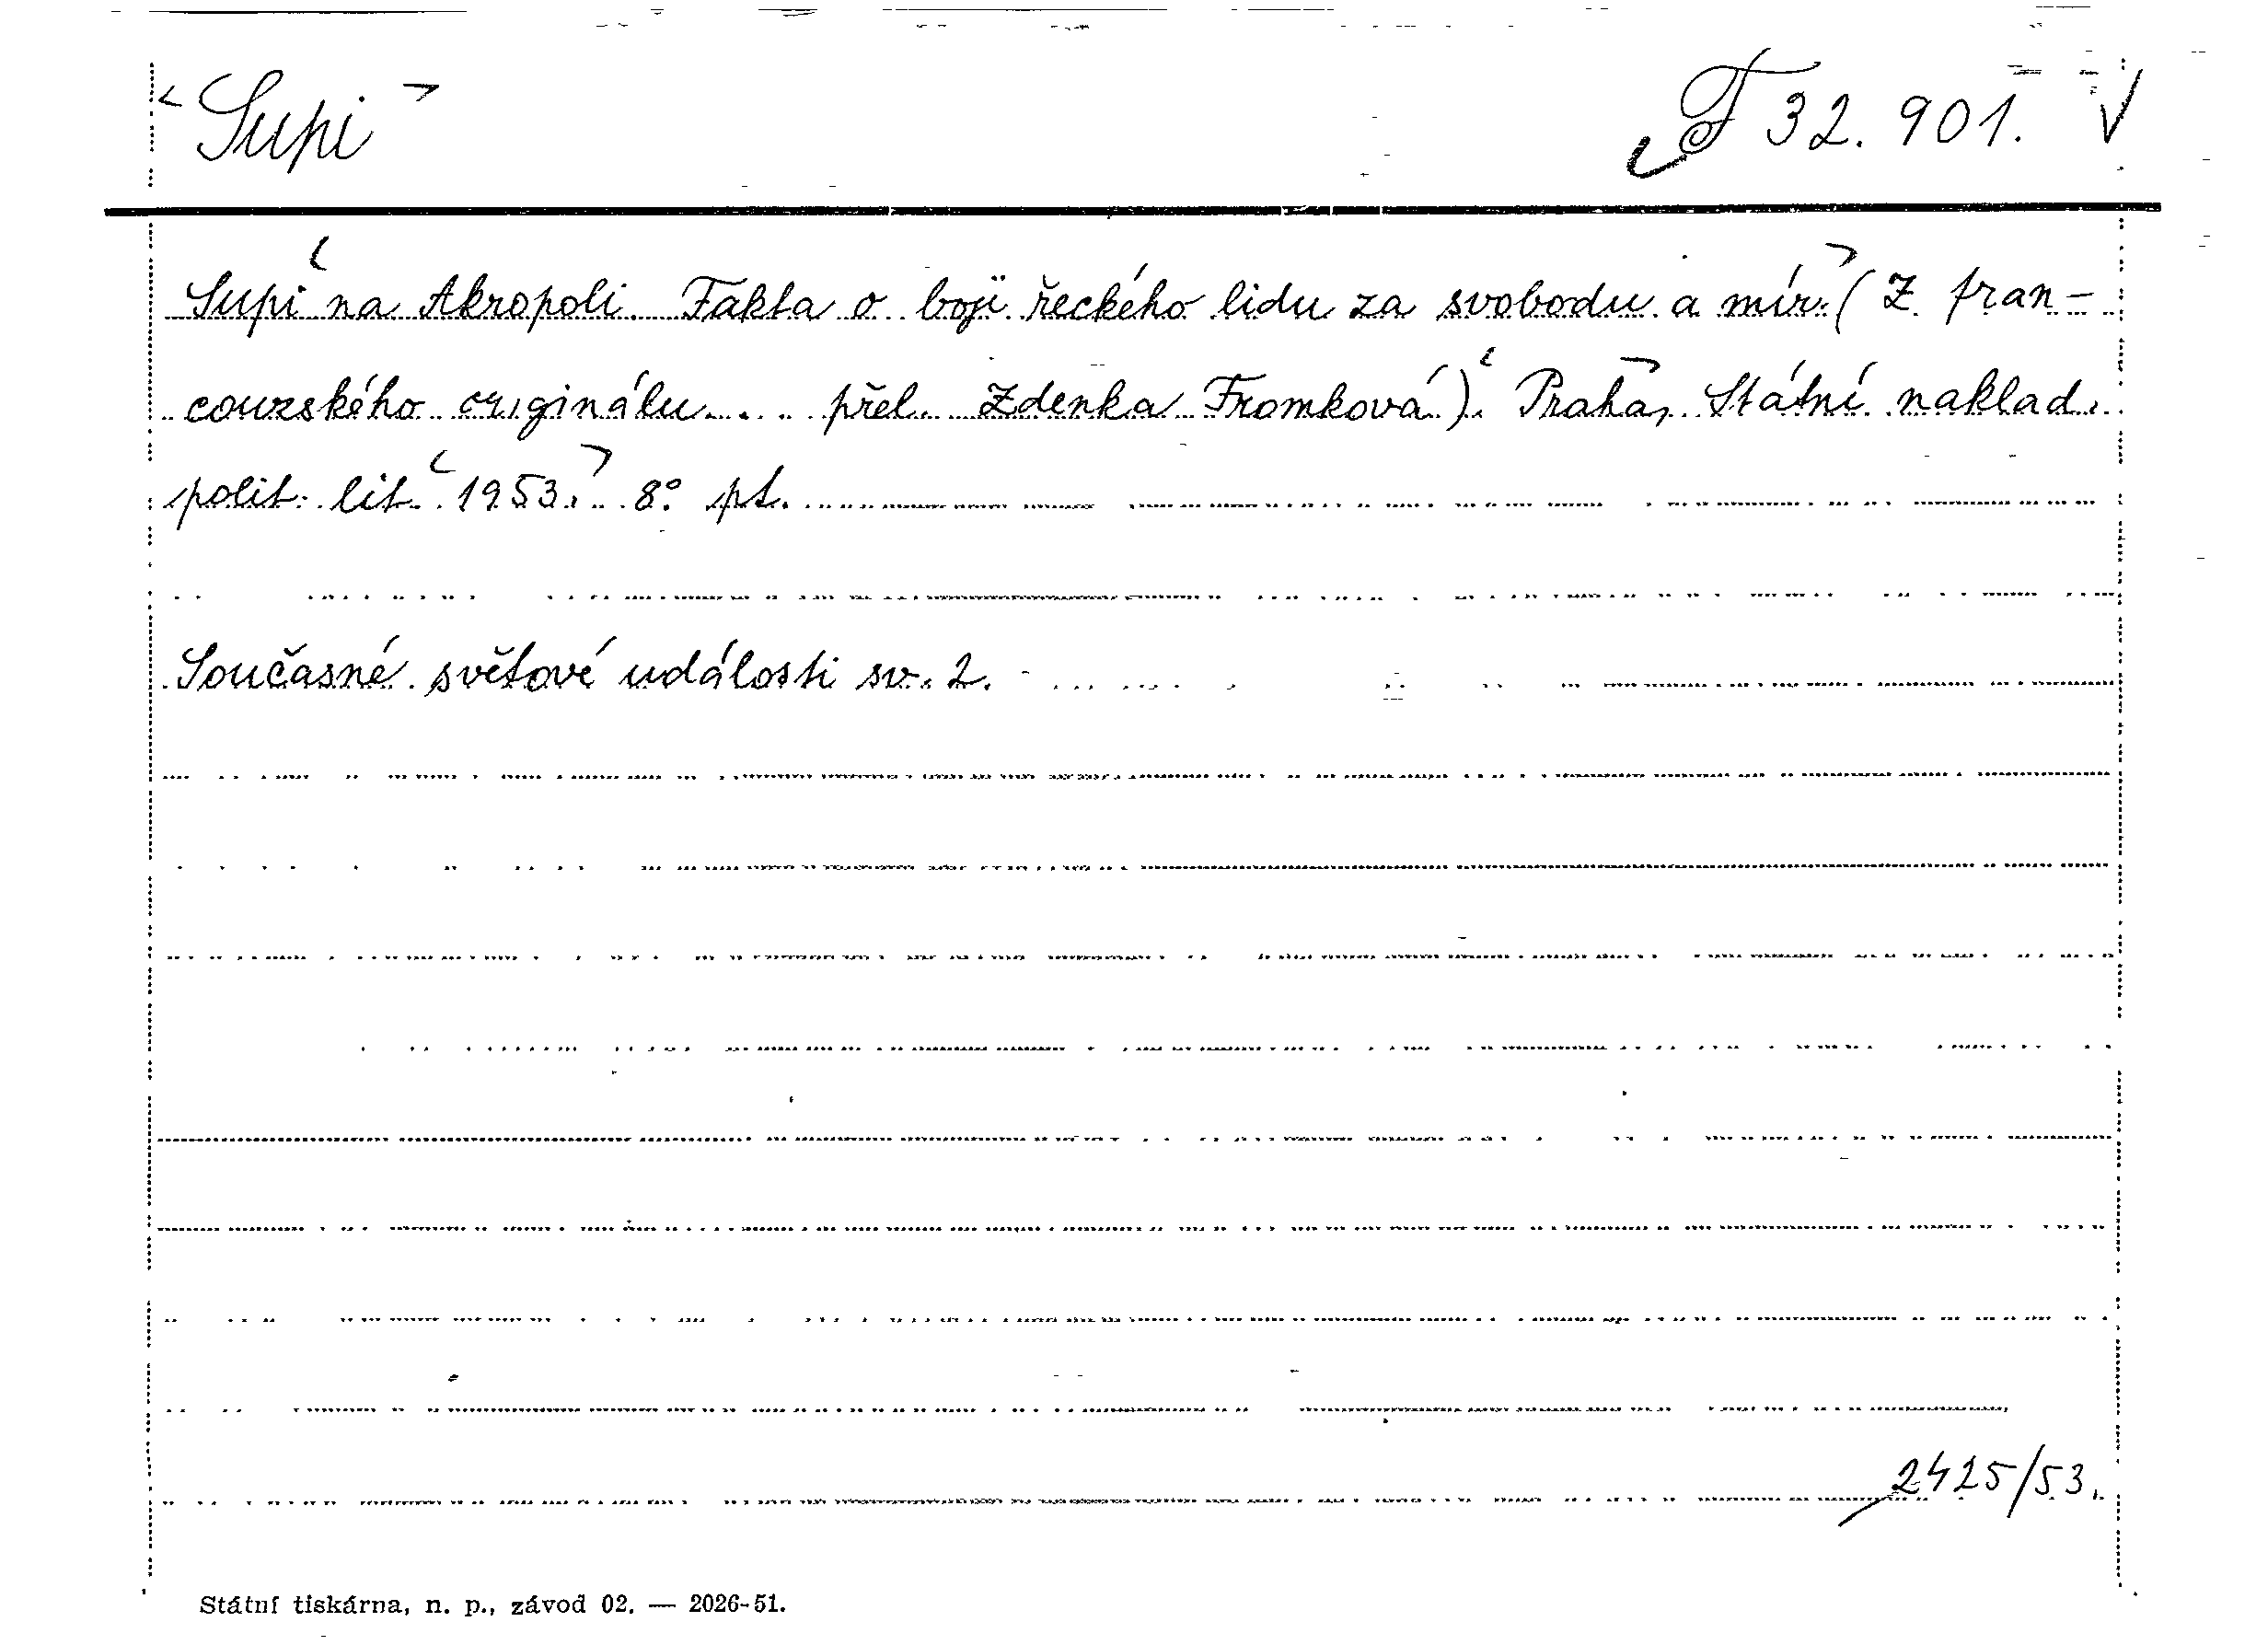 Supi F 32.901.
Supi na Akropoli. Fakta o boji řeckého lidu za svobodu a mír. (Z fran-
couzského originálu ... přel. Zdenka Fromková). Praha, Státní naklad.
polit. lit. 1953. 8° pt.
Současné světové události sv. 2.
2425/53.
Státní tiskárna, n. p., závod 02. — 2026-51.